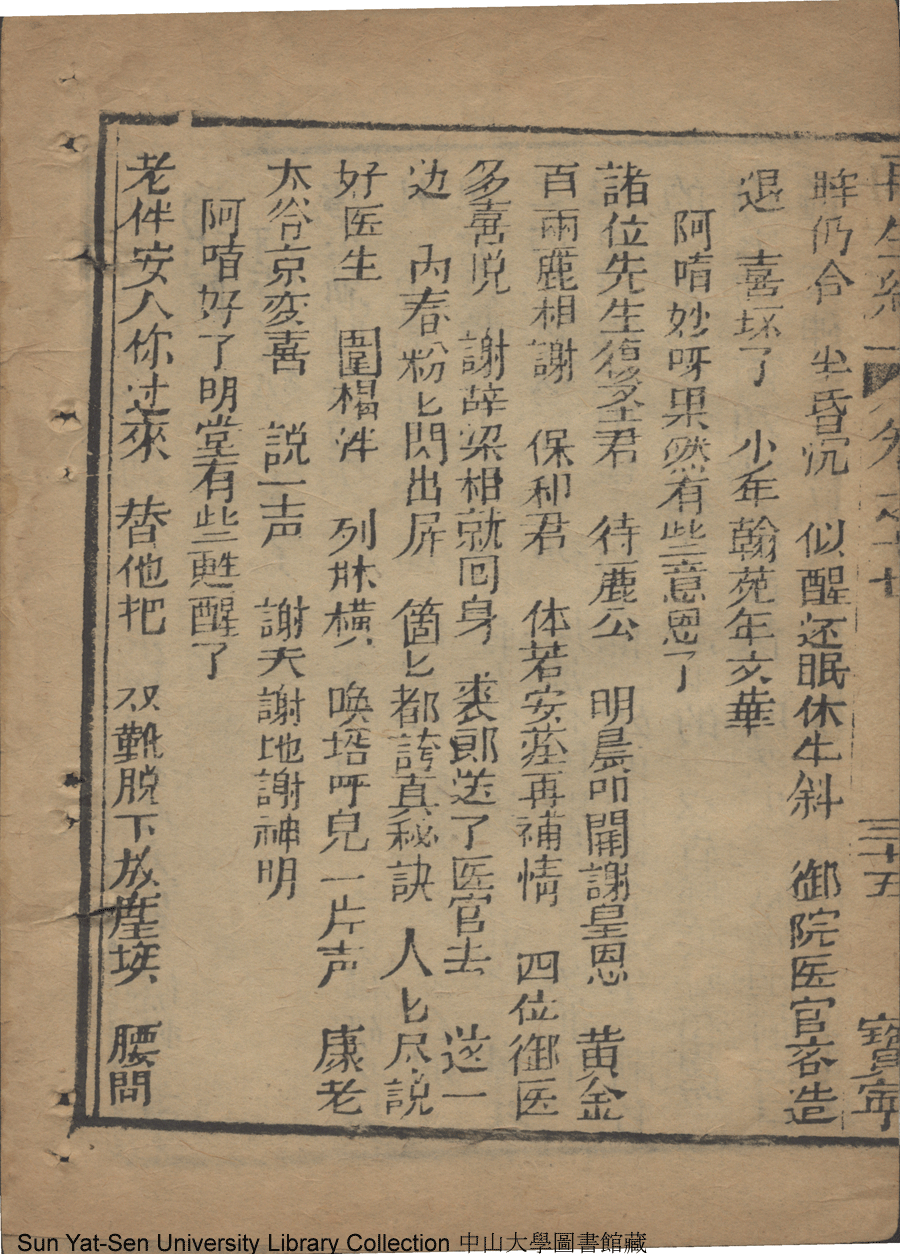 再生緣 卷之十七 三十五 寶寧
眸仍合 半昏沉 似醒还眠休半斜 御院医官容造
退 喜坏了 少年翰苑年文華
阿唷妙呀果然有些意思了
諸位先生復圣君 待鹿公 明晨叩閽謝皇恩 黄金
百両鹿相謝 保和君 体若安痊再補情 四位御医
多喜悦 謝辞梁相就囘身 裘郎送了医官去 这一
边 内春粉匕閃出屏 箇匕都誇真秘訣 人匕尽説
好医生 圍榻泮 列牀横 喚壻呼兒一片声 康老
太爷京変喜 説一声 謝天謝地謝神明
阿唷好了明堂有些甦醒了
老伴安人你过來 替他把 双靴脱下放塵埃 腰間
Sun Yat-Sen University Library Collection 中山大學圖書館藏